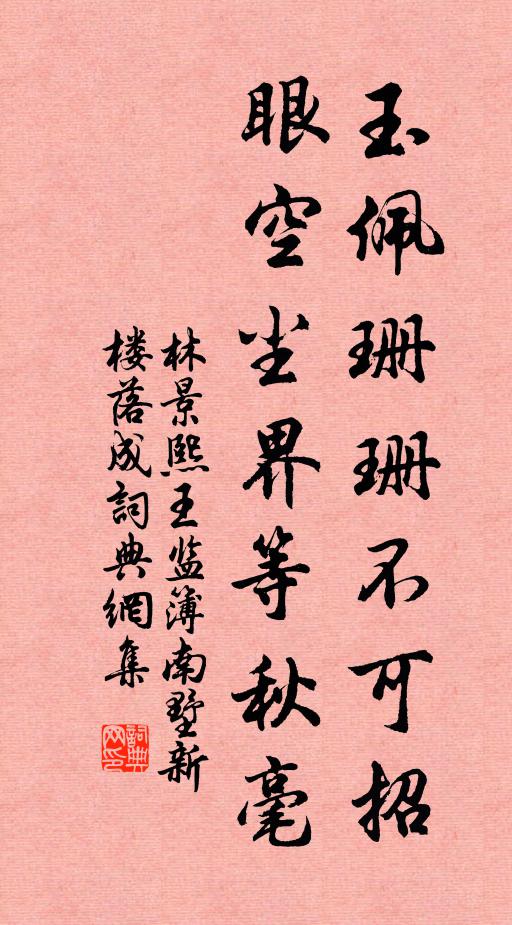 玉佩珊珊不可招
眼空尘界等秋毫
林景熙王监簿南墅新
楼落成詞典網集
詞典
网印